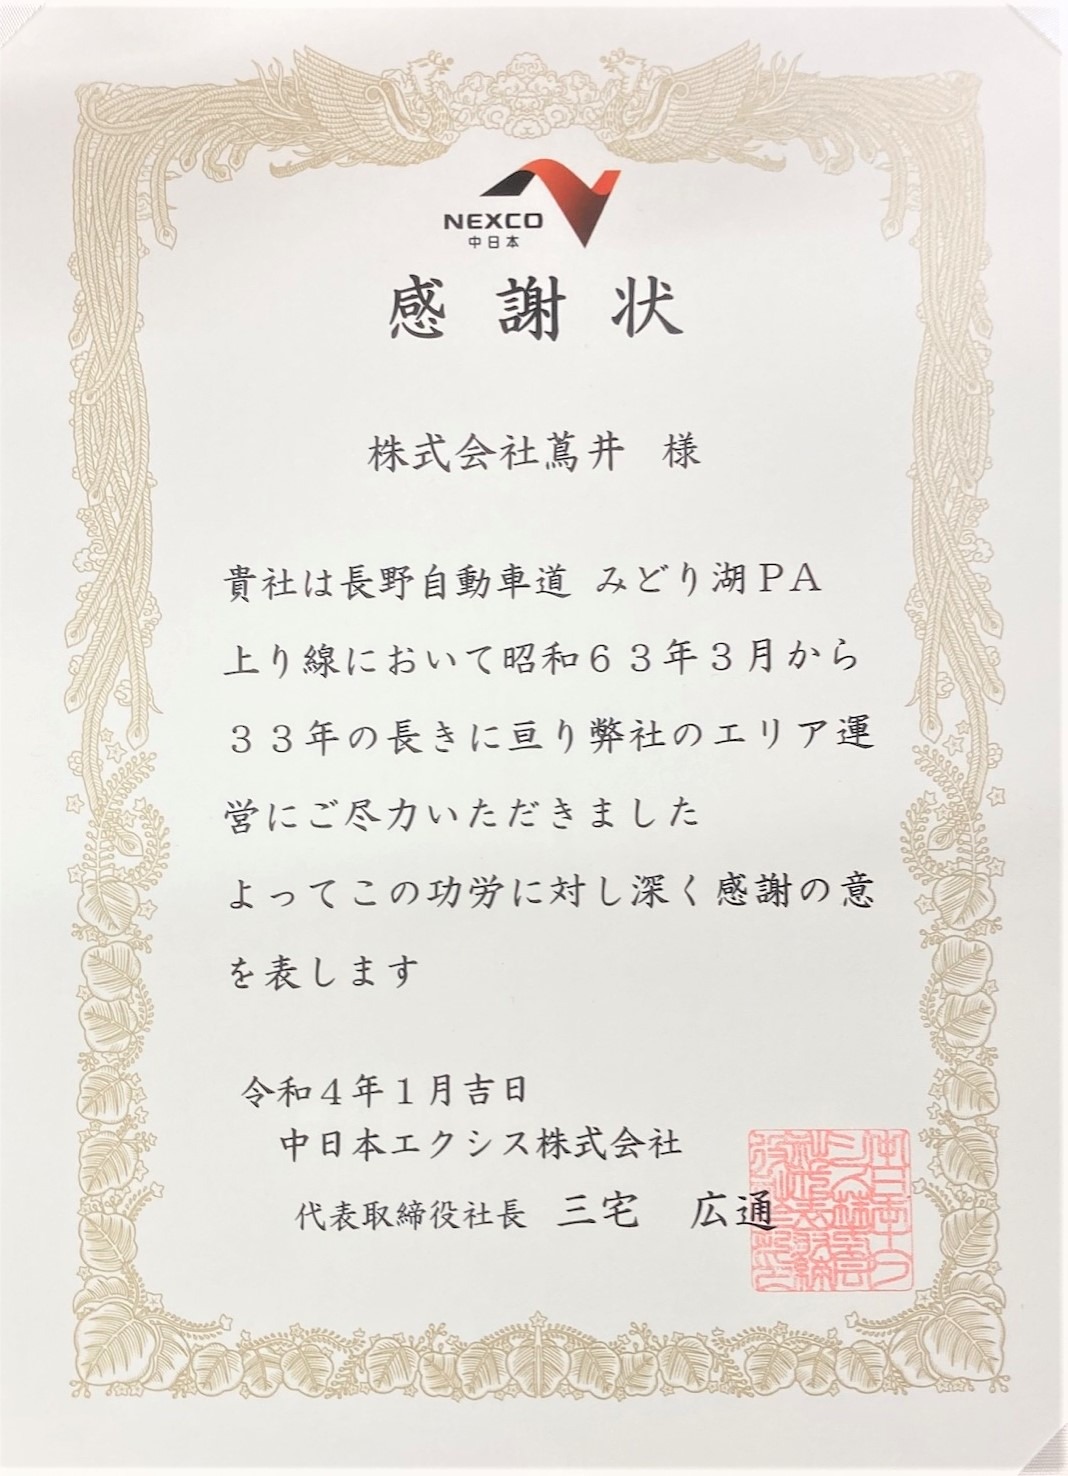 NEXCO
中日本
感謝状
株式会社蔦井 様
貴社は長野自動車道 みどり湖PA
上り線において昭和63年3月から
33年の長きに亘り弊社のエリア運
営にご尽力いただきました
よってこの功労に対し深く感謝の意
を表します
令和4年1月吉日
中日本エクシス株式会社
代表取締役社長 三宅 広通